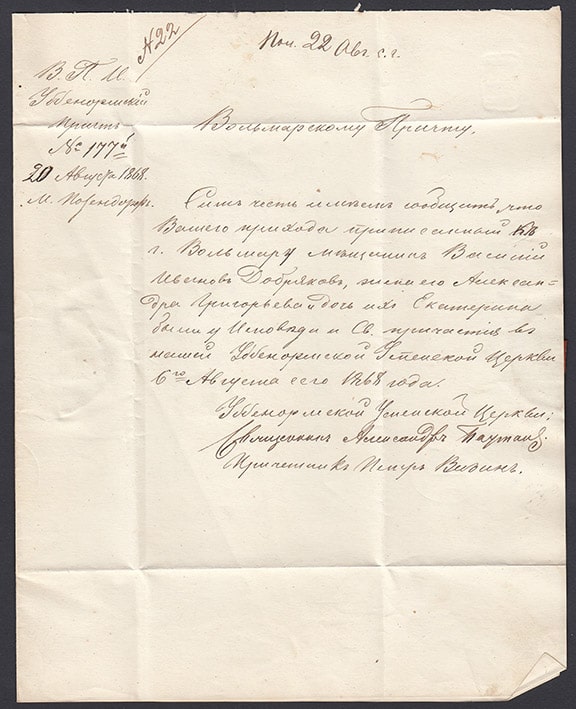 N 22
Пол. 22 Авг. с. г.
В. П. И.
Уббенормскiй
Причтъ
№ 177
20 Августа 1868.
М. Позендорфъ.
Вольмарскому Причту.
Симъ честь имѣемъ сообщить, что
Вашего прихода приписанный къ
г. Вольмару мѣщанинъ Василiй
Ивановъ Добряковъ, жена его Алексан-
дра Григорьева и дочь ихъ Екатерина
были у Исповѣди и Св. причастiя въ
нашей Уббенормской Успенской Церкви
6го Августа сего 1868 года.
Уббенормской Успенской Церкви:
Священникъ Александръ
Причетникъ Петръ Визинъ.